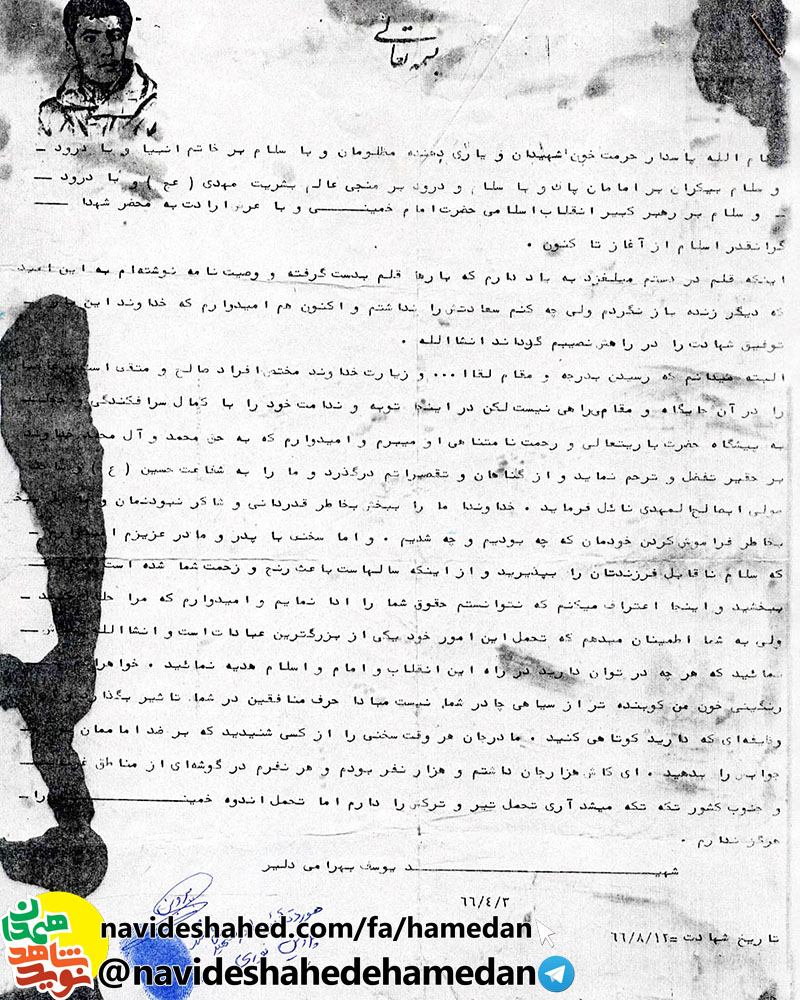 بسمه تعالی
بنام الله پاسدار حرمت خون شهیدان و یاری دهنده مظلومان و با سلام بر خاتم انبیا و با درود
و سلام بیکران بر امامان پاك و با سلام و درود بر منجی عالم بشریت مهدی ( عج ) و با درود
و سلام بر رهبر کبیر انقلاب اسلامی حضرت امام خمینی و با عرض ارادت به محضر شهدا
گرانقدر اسلام از آغاز تا کنون .
اینکه قلم در دستم میلغزد به یاد دارم که بارها قلم بدست گرفته و وصیت نامه نوشته‌ام به این امید
که دیگر زنده باز نگردم ولی چه کنم سعادتش را نداشتم و اکنون هم امیدوارم که خداوند این بار
توفیق شهادت را در راهش نصیبم گرداند انشاالله .
البته میدانم که رسیدن بدرجه و مقام لقاا... و زیارت خداوند مختص افراد صالح و متقی است
را در آن جایگاه و مقام راهی نیست لکن در اینجا توبه و ندامت خود را با کمال سرافکندگی و
به پیشگاه حضرت باریتعالی و رحمت نامتناهی او میبرم و امیدوارم که به حق محمد و آل محمد خداوند
بر حقیر تفضل و ترحم نماید و از گناهان و تقصیراتم درگذرد و ما را به شفاعت حسین ( ع )
مولی ابصالح المهدی نائل فرماید . خداوندا ما را ببخش بخاطر قدردانی و شاکر نبودنمان و
بخاطر فراموش کردن خودمان که چه بودیم و چه شدیم . و اما سخنی با پدر و مادر عزیزم
که سلام ناقابل فرزندتان را بپذیرید و از اینکه سالهاست باعث رنج و زحمت شما شده است
ببخشید و اینجا اعتراف میکنم که نتوانستم حقوق شما را ادا نمایم و امیدوارم که مرا
ولی به شما اطمینان میدهم که تحمل این امور خود یکی از بزرگترین عبادات است و انشاالله
نمائید که هر چه در توان دارید در راه این انقلاب و امام و اسلام هدیه نمائید . خواهرا
رنگینی خون من کوبنده تر از سیاهی چادر شما نیست مبادا حرف منافقین در شما تاثیر بگذارد
وظیفه‌ای که دارید کوتاهی کنید . مادرجان هر وقت سخنی را از کسی شنیدید که بر ضد اماممان
جوابش را بدهید . ای کاش هزار جان داشتم و هزار نفر بودم و هر نفرم در گوشه‌ای از مناطق
و جنوب کشور تکه تکه میشد آری تحمل تیر و ترکش را دارم اما تحمل اندوه خمینی را
هرگز ندارم .
شهید یوسف بهرامی دلیر
۶۶/۴/۲
تاریخ شهادت = ۶۶/۸/۱۲
نوید شاهد همدان
navideshahed.com/fa/hamedan
@navideshahedehamedan